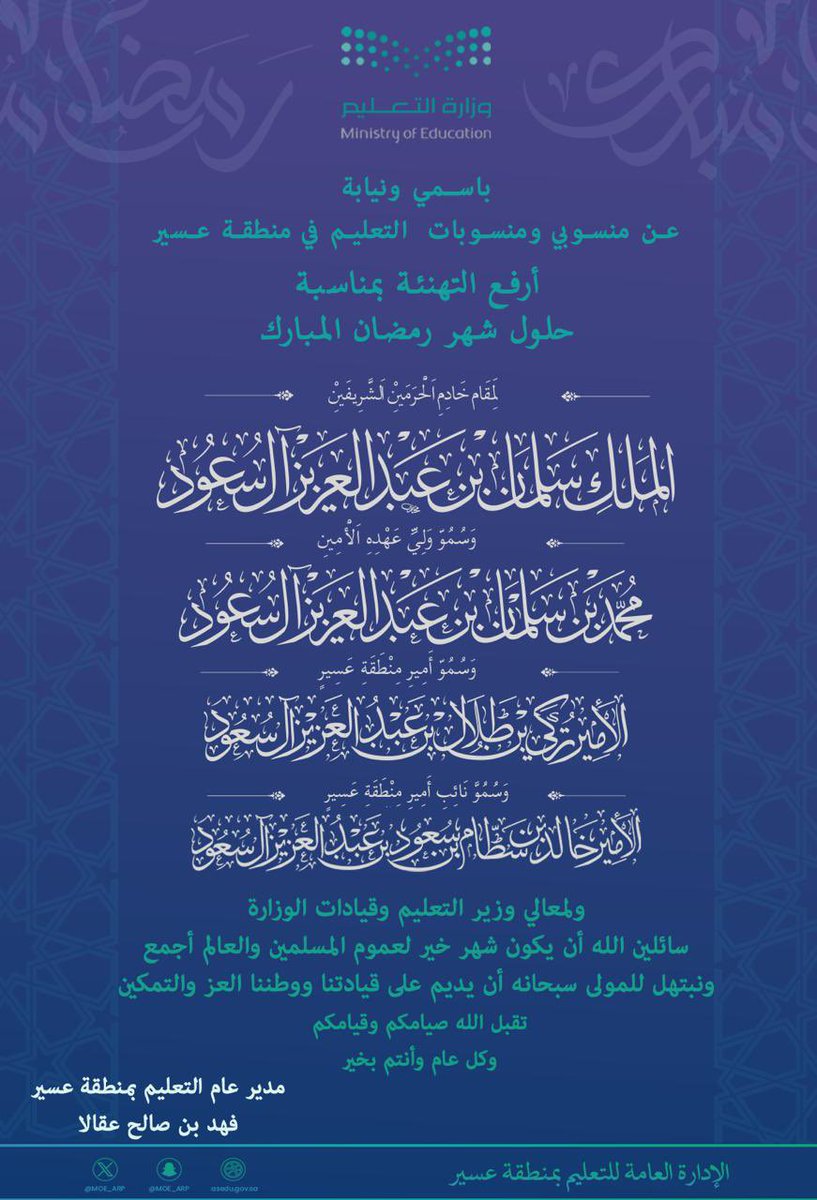 رمضان مبارك
وزارة التعـــليم
Ministry of Education
باســمي ونيابة
عـن منسـوبي ومنسـوبات التعليـم في منطقـة عـسير
أرفـع التهنئـة بمناسبـة
حلـول شهـر رمضـان المبارك
لِمَقَام خَادِمِ الْحَرَمَيْنِ الشَّرِيفَيْنِ
الملك سلمان بن عبد العزيز آل سعود
وَسُمُوّ وَلِيِّ عَهْدِهِ الْأَمِينِ
محمد بن سلمان بن عبد العزيز آل سعود
وَسُمُوّ أَمِيرِ مِنْطَقَة عَسِيرٍ
الأمير تركي بن طلال بن عبد العزيز آل سعود
وَسُمُوَّ نَائِب أَمِيرِ مِنْطَقَةِ عَسِيرٍ
الأمير خالد بن سطام بن سعود بن عبد العزيز آل سعود
ولمعالي وزير التعليم وقيادات الوزارة
سائلين الله أن يكون شهر خير لعموم المسلمين والعالم أجمع
ونبتهل للمولى سبحانه أن يديم على قيادتنا ووطننا العز والتمكين
تقبل الله صيامكم وقيامكم
وكل عام وأنتم بخير
مدير عام التعليم بمنطقة عسير
فهد بن صالح عقالا
الإدارة العامة للتعليم بمنطقة عسير
@MOE_ARP
@MOE_ARP
asedu.gov.sa